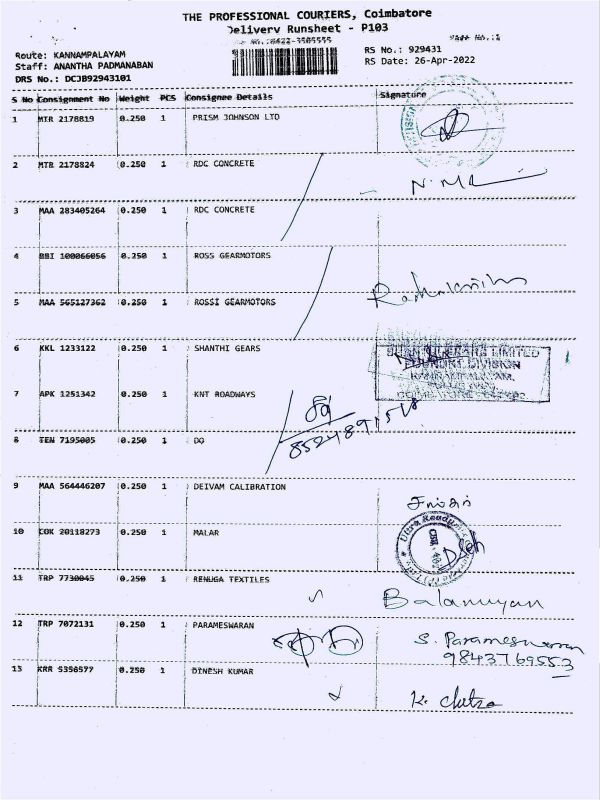 THE PROFESSIONAL COURIERS, Coimbatore
Delivery Runsheet - P103
Ph No.:0422-3505555 Page No.:1
Route: KANNAMPALAYAM RS No.: 929431
Staff: ANANTHA PADMANABAN RS Date: 26-Apr-2022
DRS No.: DCJB92943101
S No Consignment No Weight PCS Consignee Details Signature
1 MTR 2178819 0.250 1 PRISM JOHNSON LTD
2 MTR 2178824 0.250 1 RDC CONCRETE
3 MAA 283405264 0.250 1 RDC CONCRETE
4 BBI 100066056 0.250 1 ROSS GEARMOTORS
5 MAA 565127362 0.250 1 ROSSI GEARMOTORS
6 KKL 1233122 0.250 1 SHANTHI GEARS
LIMITED
FOUNDRY DIVISION
7 APK 1251342 0.250 1 KNT ROADWAYS
8 TEN 7195005 0.250 1 DO
9 MAA 564446207 0.250 1 DEIVAM CALIBRATION
10 COK 20118273 0.250 1 MALAR
11 TRP 7730045 0.250 1 RENUGA TEXTILES
Balamuyan
12 TRP 7072131 0.250 1 PARAMESWARAN S. Parameswaran
9843769553
13 KRR 5356577 0.250 1 DINESH KUMAR
K. Chitra